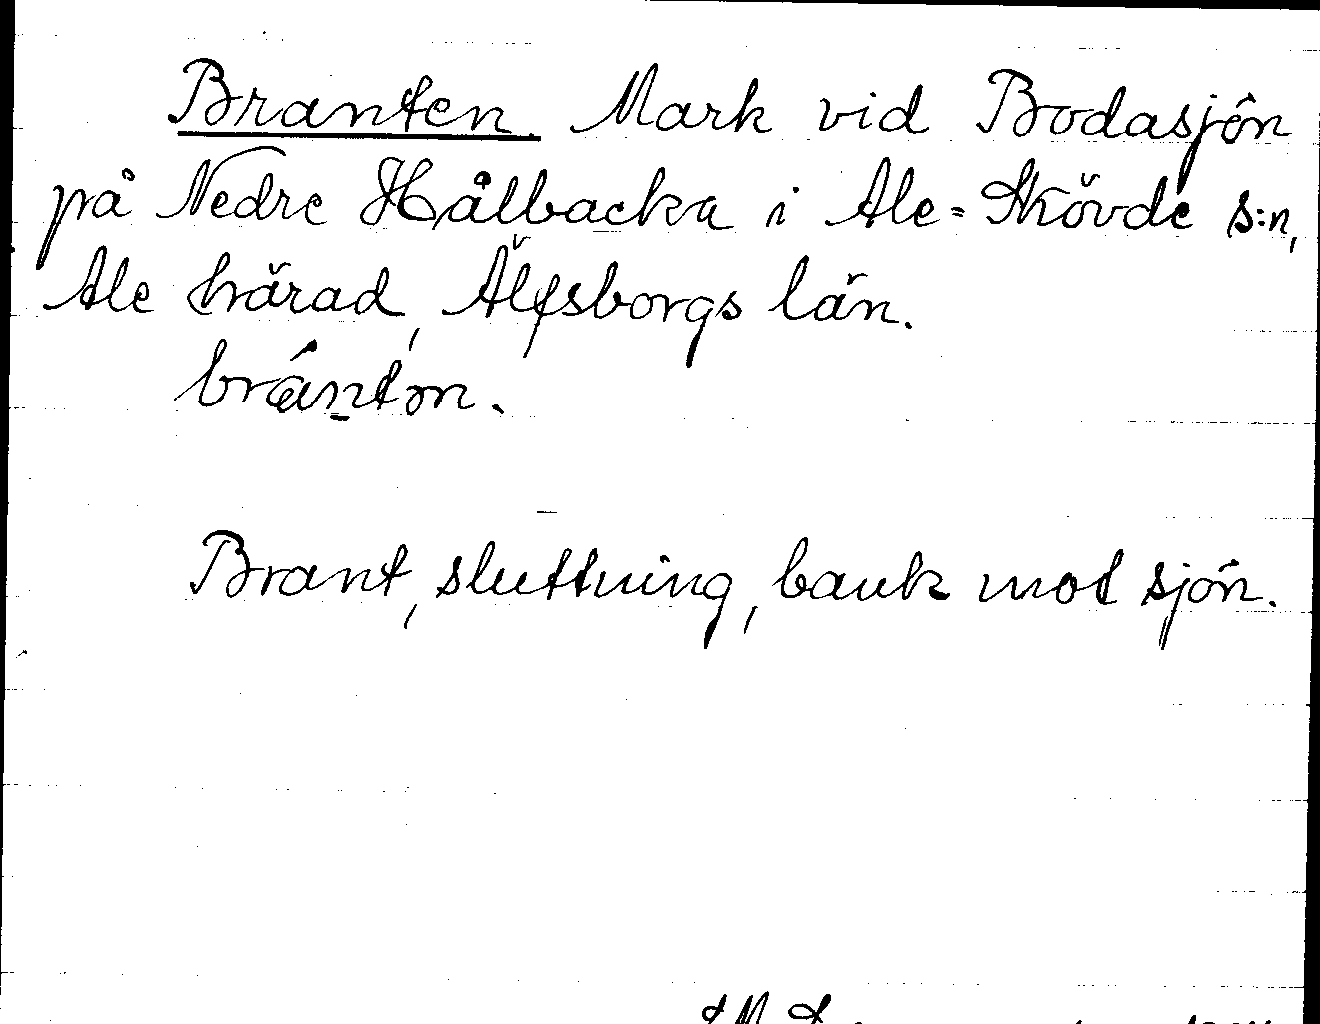 Branten. Mark vid Bodasjön
på Nedre Hålbacka i Ale-Skövde s:n,
Ale härad, Älfsborgs län.
brántən.
Brant, sluttning, bank mot sjön.